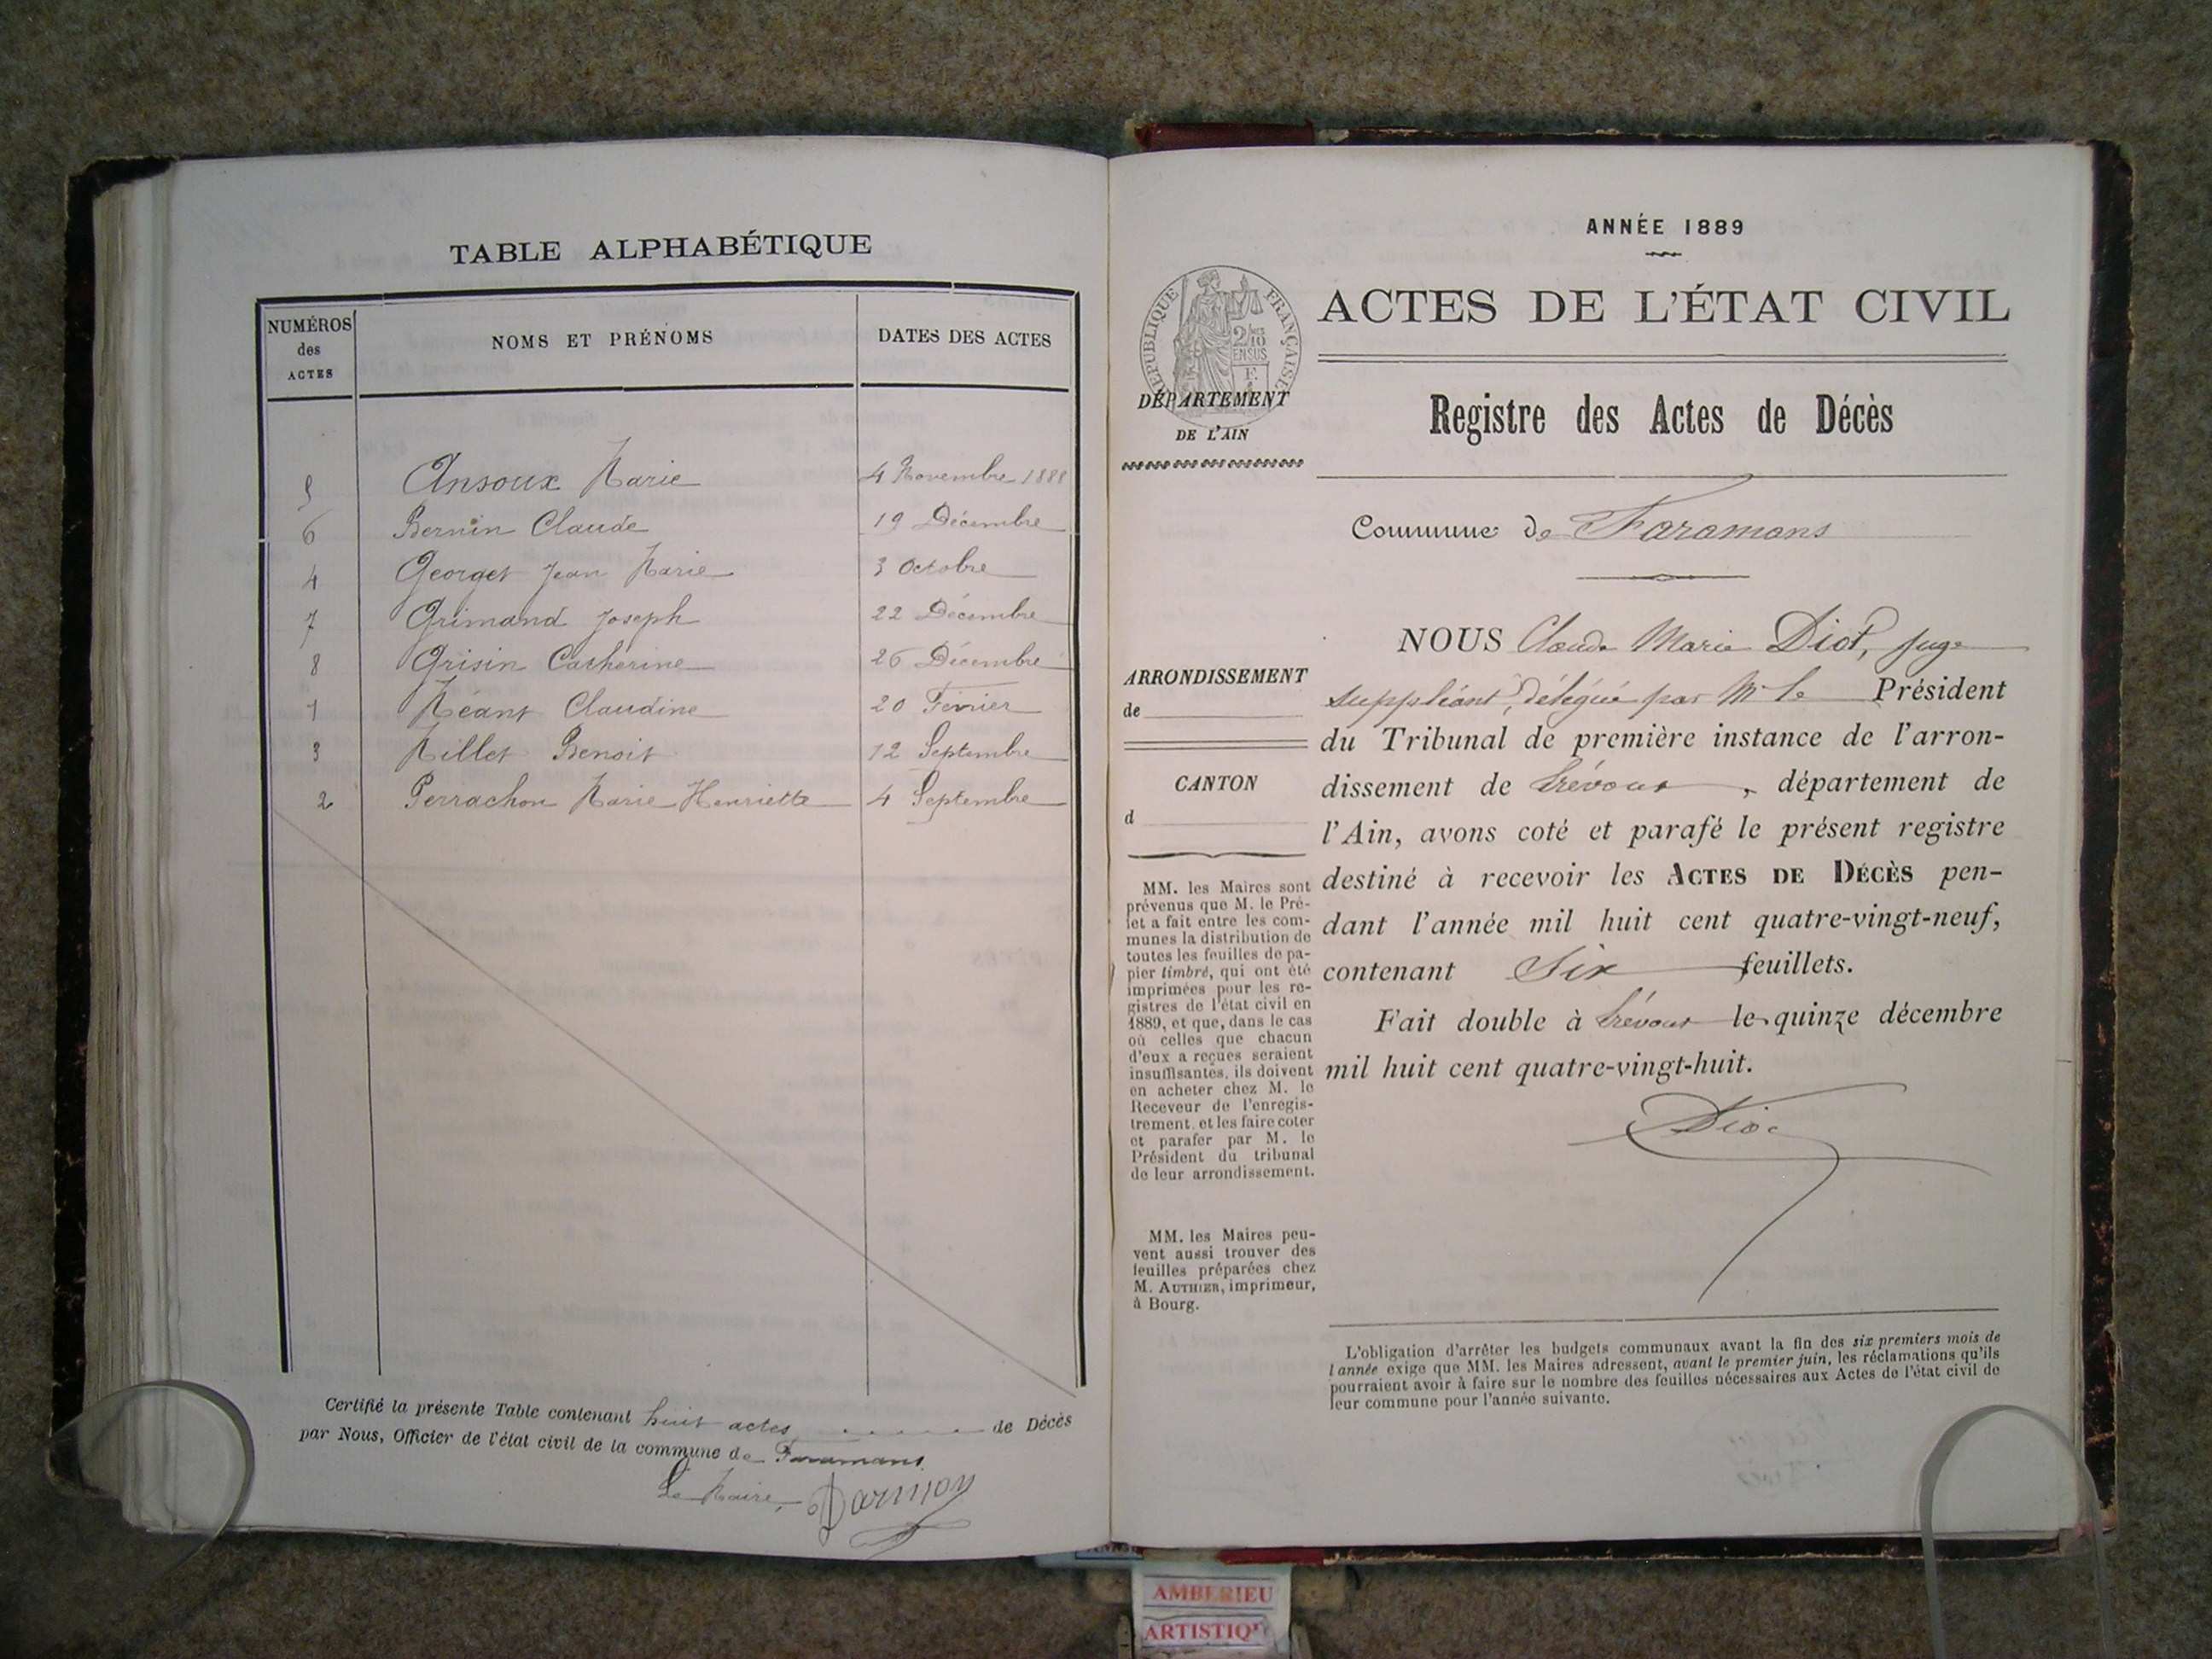 TABLE ALPHABÉTIQUE
NUMÉROS des ACTES
NOMS ET PRÉNOMS
DATES DES ACTES
5 Ansoux Marie 4 Novembre 1888
6 Bernin Claude 19 Décembre
4 Georget Jean Marie 3 Octobre
7 Grimand Joseph 22 Décembre
8 Grisin Catherine 26 Décembre
1 Méant Claudine 20 Février
3 Millet Benoit 12 Septembre
2 Perrachon Marie Henriette 4 Septembre
Certifié la présente Table contenant huit actes de Décès
par Nous, Officier de l'état civil de la commune de Faramans
Le Maire,
ANNÉE 1889
RÉPUBLIQUE FRANÇAISE
2/10
EN SUS
ACTES DE L'ÉTAT CIVIL
DÉPARTEMENT
DE L'AIN
Registre des Actes de Décès
Commune de Faramans
ARRONDISSEMENT
de
CANTON
d
MM. les Maires sont
prévenus que M. le Pré-
fet a fait entre les com-
munes la distribution de
toutes les feuilles de pa-
pier timbré, qui ont été
imprimées pour les re-
gistres de l'état civil en
1889, et que, dans le cas
où celles que chacun
d'eux a reçues seraient
insuffisantes, ils doivent
en acheter chez M. le
Receveur de l'enregis-
trement, et les faire coter
et parafer par M. le
Président du tribunal
de leur arrondissement.
MM. les Maires peu-
vent aussi trouver des
feuilles préparées chez
M. AUTHIER, imprimeur,
à Bourg.
NOUS Claude Marie Diot, juge
suppléant, délégué par Mr le Président
du Tribunal de première instance de l'arron-
dissement de Trévoux, département de
l'Ain, avons coté et parafé le présent registre
destiné à recevoir les ACTES DE DÉCÈS pen-
dant l'année mil huit cent quatre-vingt-neuf,
contenant Six feuillets.
Fait double à Trévoux le quinze décembre
mil huit cent quatre-vingt-huit.
Diot
L'obligation d'arrêter les budgets communaux avant la fin des six premiers mois de
l'année exige que MM. les Maires adressent, avant le premier juin, les réclamations qu'ils
pourraient avoir à faire sur le nombre des feuilles nécessaires aux Actes de l'état civil de
leur commune pour l'année suivante.
AMBERIEU
ARTISTIQU